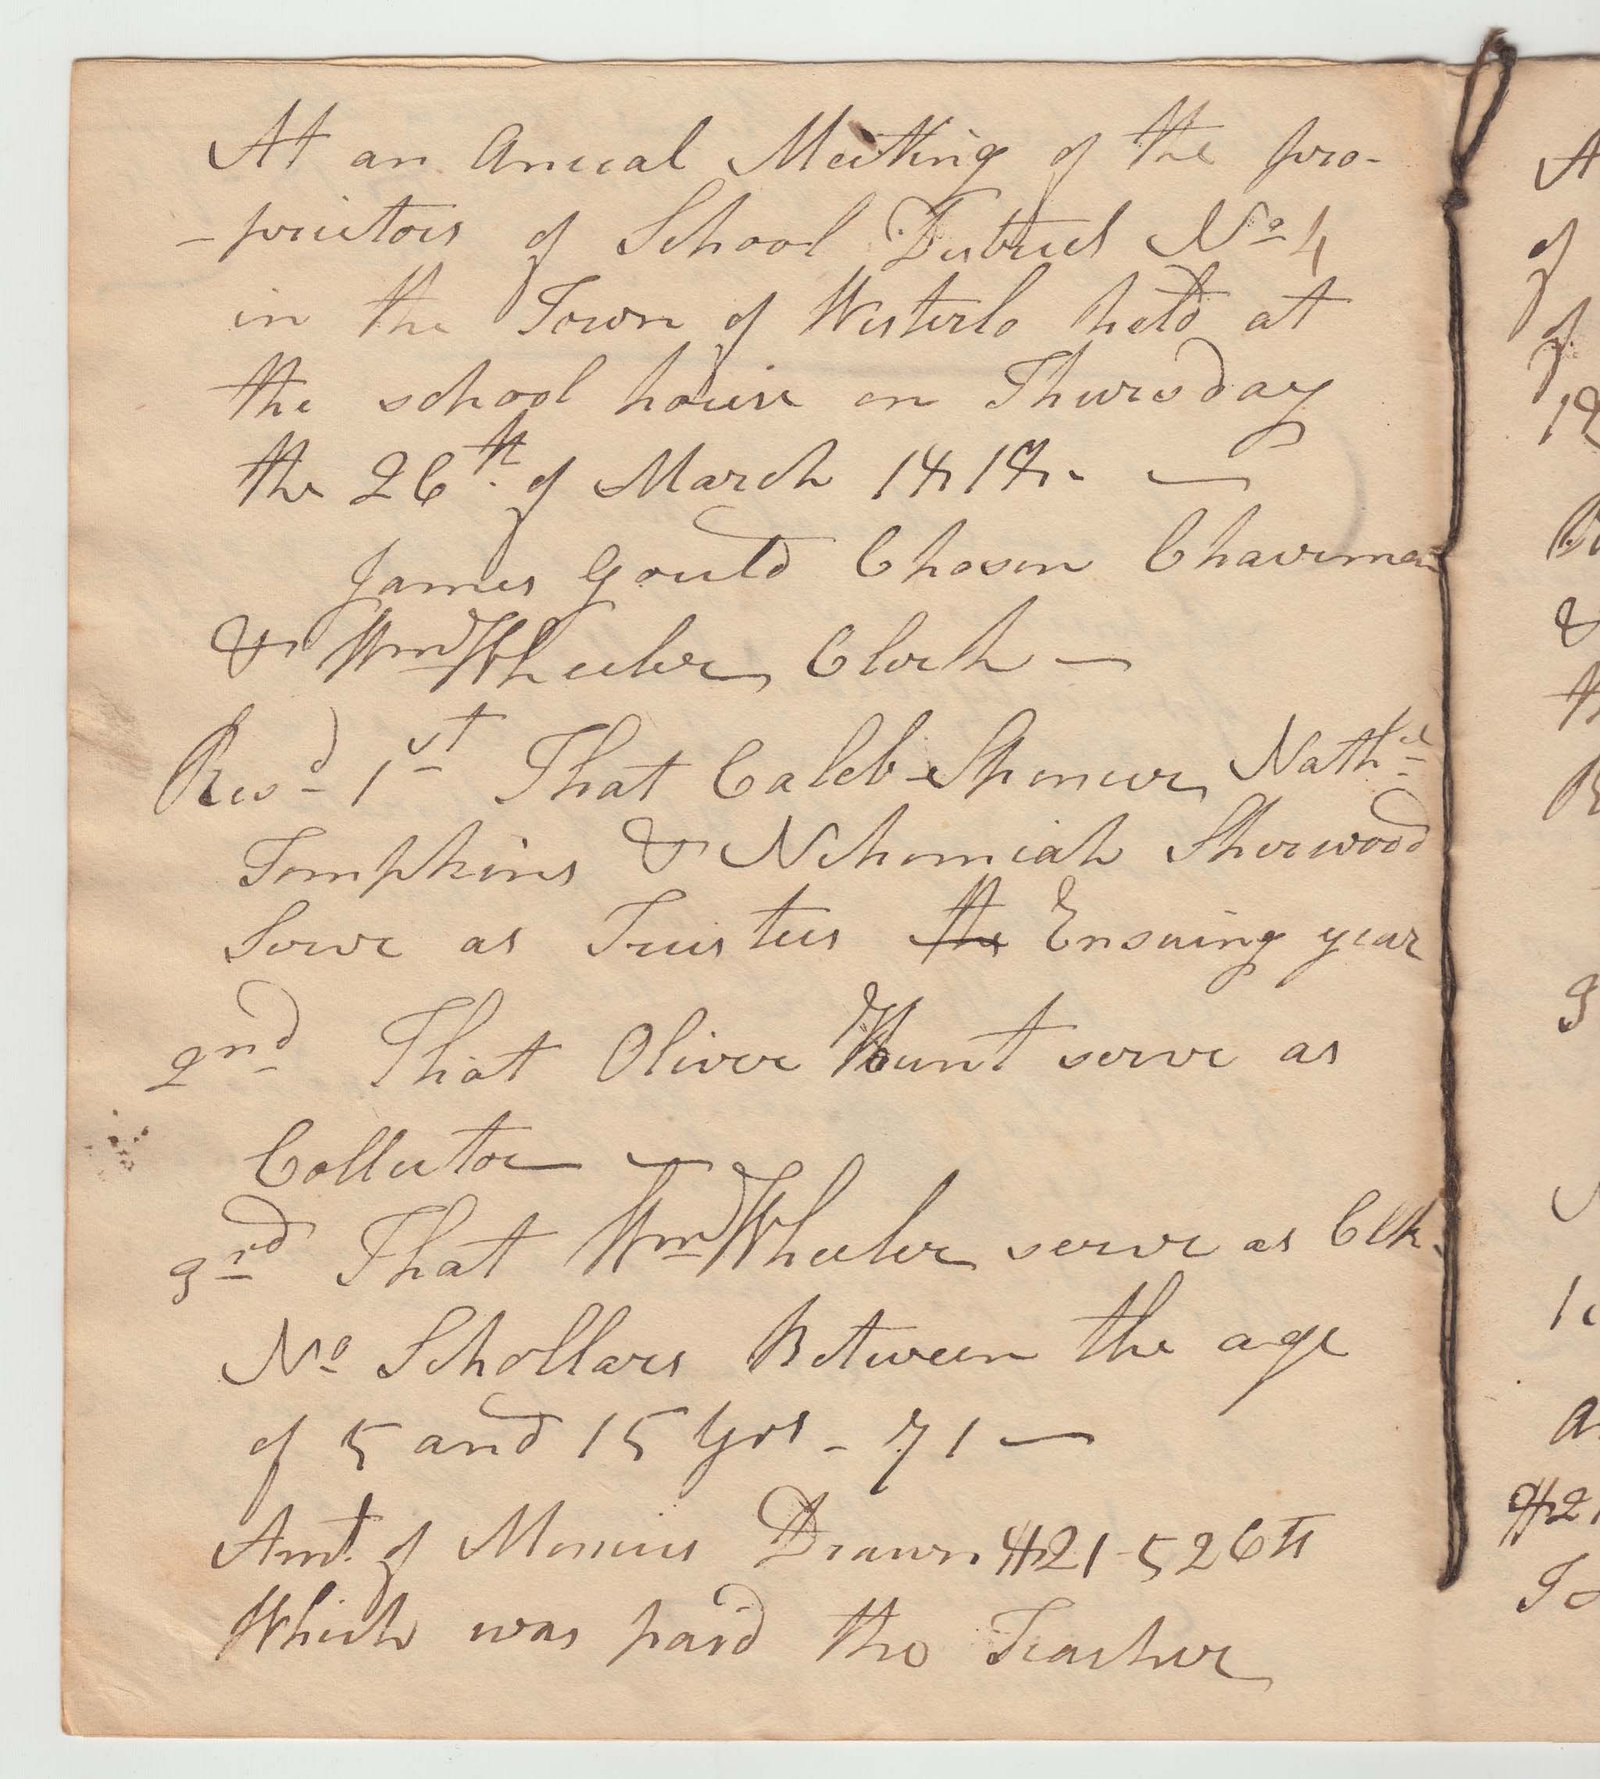 At an Anual Meeting of the pro-
-prietors of School District No 4
in the Town of Westerlo held at
the school house on Thursday
the 26th. of March 1818. —
James Gould Chosen Chairman
& Wm Wheeler Clerk —
Resd 1st That Caleb Spencer, Nathl
Tompkins & Nehemiah Sherwood
Serve as Trustees the Ensuing year
2nd That Oliver Hunt serve as
Collector —
3rd That Wm Wheeler serve as Clk.
No Schollars Between the age
of 5 and 15 Yrs - 71 —
Amt. of Monies Drawn $21-52 Cts
Which was paid the Teacher